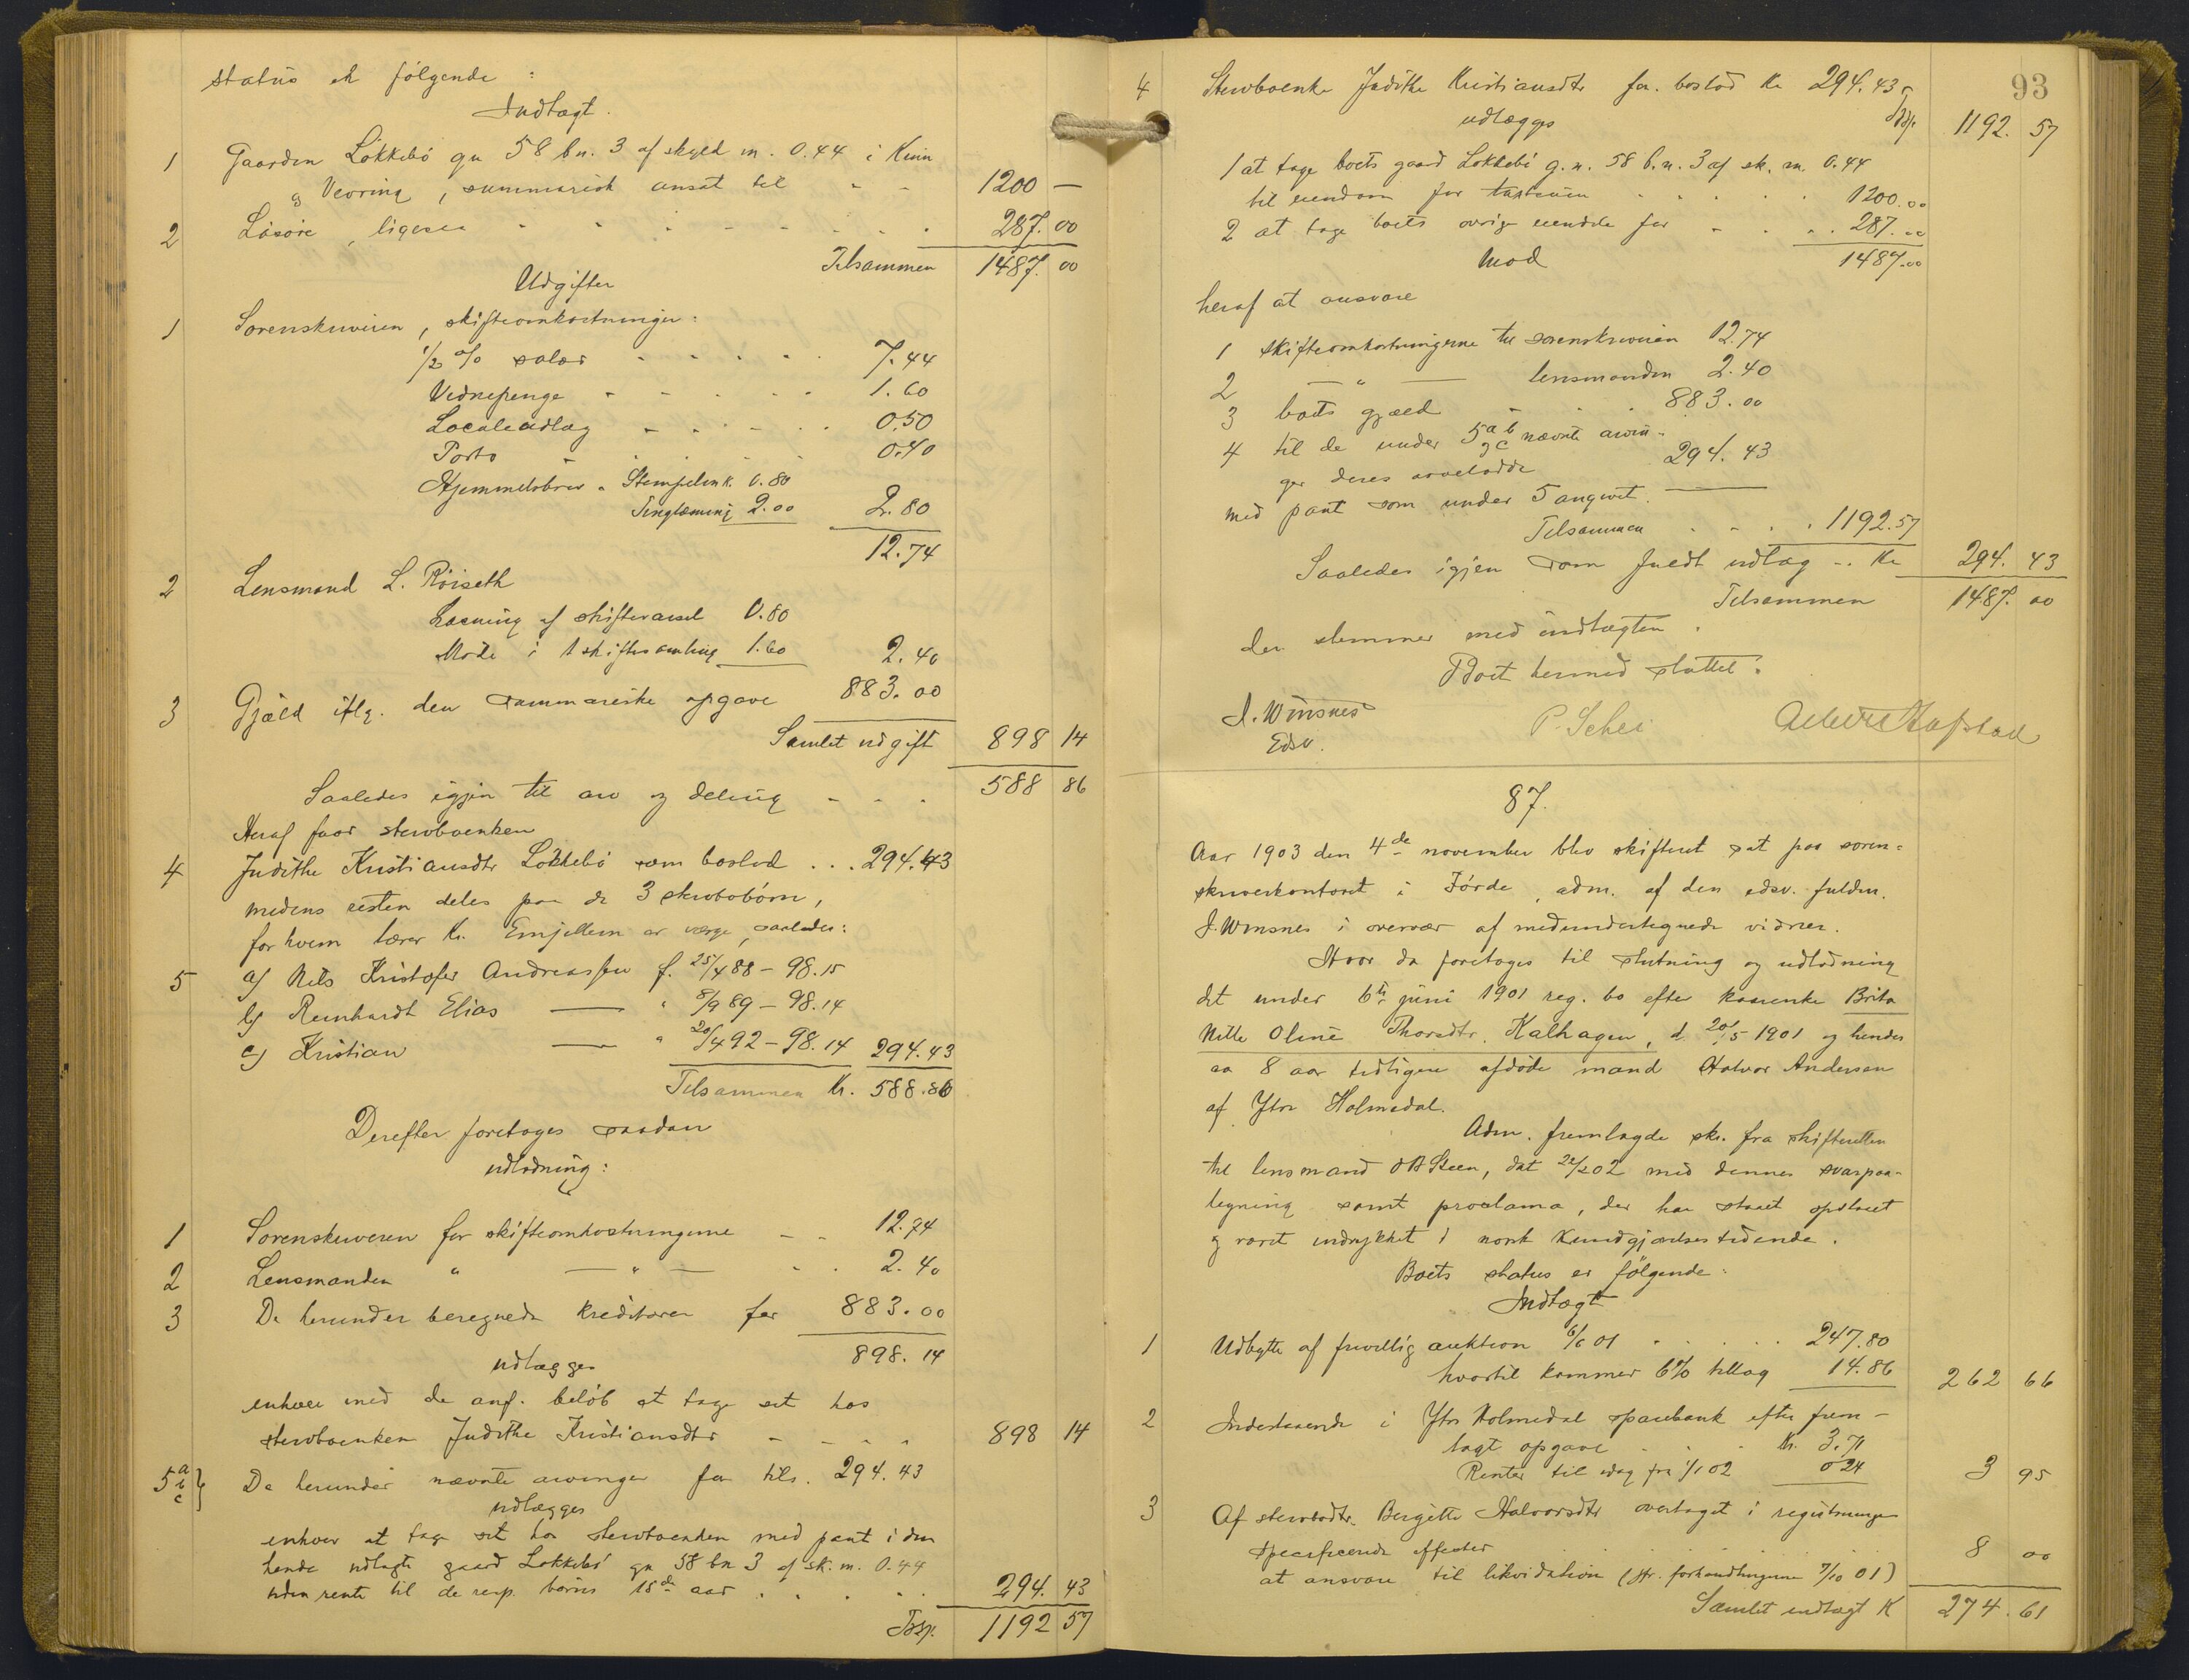 status er følgende:
Indtægt.
1 Gaarden Løkkebø gn 58 bn. 3 af skyld m. 0.44 i Kinn
og Vevring, summarisk ansat til - - 1200 —
2 Løsøre, ligesaa - - - - - - 287. 00
Tilsammen 1487. 00
Udgifter
1 Sorenskriveren, skifteomkostninger:
1/2 % salær - - - - - 7.44
Vidnepenge - - - - - 1.60
Localeudlæg - - - - - 0.50
Porto - - - - 0.40
Hjemmelsbrev - Stempelmk. 0.80
Tinglæsning 2.00 2.80
12.74
2 Lensmand L. Røiseth
Læsning af skiftevarsel 0.80
Møde i 1 skiftesamling 1.60 2.40
3 Gjæld iflg. den summariske opgave 883.00
Samlet udgift 898 14
Saaledes igjen til arv og deling - - - 588 86
Heraf faar stervboenken
4 Judithe Kristiansdtr Løkkebø som boslod . . . 294.43
medens resten deles paa de 3 stervbobørn,
for hvem lærer Kr. Emjellem er værge, saaledes:
5 a) Nils Kristofer Andreassen f. 25/4 88 - 98.15
b) Reinhardt Elias — " 8/9 89 - 98.14
c) Kristian — " 20/4 92 - 98.14 294.43
Tilsammen Kr. 588.86
Derefter foretages saadan
udlodning:
1 Sorenskriveren for skifteomkostningerne - - 12.74
2 Lensmanden " — " — - . 2.40
3 De herunder beregnede kreditorer før 883.00
udlægges 898.14
enhver med de anf. beløb at tage ut hos
stervboenken Judithe Kristiansdtr - - - - 898 14
5 a b c } De herunder nævnte arvinger før tils. 294.43
udlægges
enhver at tage ut hos stervboenken med pant i den
hende udlagte gaard Løkkebø gn 58 bn 3 af sk. m. 0.44
uden rente til de resp. børns 18de aar . . . . 294. 43
Trsp. 1192 57
93
4 Stervboenke Judithe Kristiansdtr for. boslod Kr 294.43
udlægges Trsp. 1192. 57
1 at tage boets gaard Løkkebø g.n. 58 b.n. 3 af sk. m. 0.44
til eiendom for taxtsum - . . . 1200.00
2 at tage boets øvrige eiendele for - . . . 287.00
mod 1487.00
heraf at ansvare
1 skifteomkostningerne til sorenskriveren 12.74
2 — " — lensmanden 2.40
3 boets gjæld - . . 883.00
4 til de under 5 a b og c nævnte arvin-
ger deres arvelodde 294.43
med pant som under 5 angivet. —
Tilsammen . . . . 1192.57
Saaledes igjen som fuldt udlæg - . Kr 294. 43
Tilsammen 1487. 00
der stemmer med indtægten.
Boet hermed sluttet.
J. Winsnes
Edsv.
P. Schei
87.
Aar 1903 den 4de november blev skifteret sat paa soren-
skriverkontoret i Førde, adm. af den edsv. fuldm.
J. Winsnes i overvær af medundertegnede vidner.
Hvor da foretages til slutning og udlodning
det under 6te juni 1901 reg. bo efter kaarenke Brita
Nille Oline Thorsdtr. Kalhagen, d. 20/5 1901 og hendes
ca 8 aar tidligere afdøde mand Halvor Andersen
af Ytre Holmedal.
Adm. fremlagde skr. fra skifteretten
til lensmand O B Steen, dat 22/2 02 med dennes svarpaa-
tegning samt proclama, der har staaet opslaaet
og været indrykket i norsk Kundgjørelsestidende.
Boets status er følgende:
Indtægt
1 Udbytte af frivillig auktion 6/6 01 - . . . 247.80
hvortil kommer 6% tillæg 14.86 262 66
2 Indestaaende i Ytre Holmedal sparebank efter frem-
lagt opgave - . - Kr. 3.71
Renter til idag fra 1/1 02 0 24 3 95
3 Af stervbodtr. Bergitte Halvorsdtr overtaget i registreringen
specificerede effecter . . . . . 8 00
at ansvare til likvidation (Hr. forhandlingerne 7/10 01)
Samlet indtægt K 274. 61